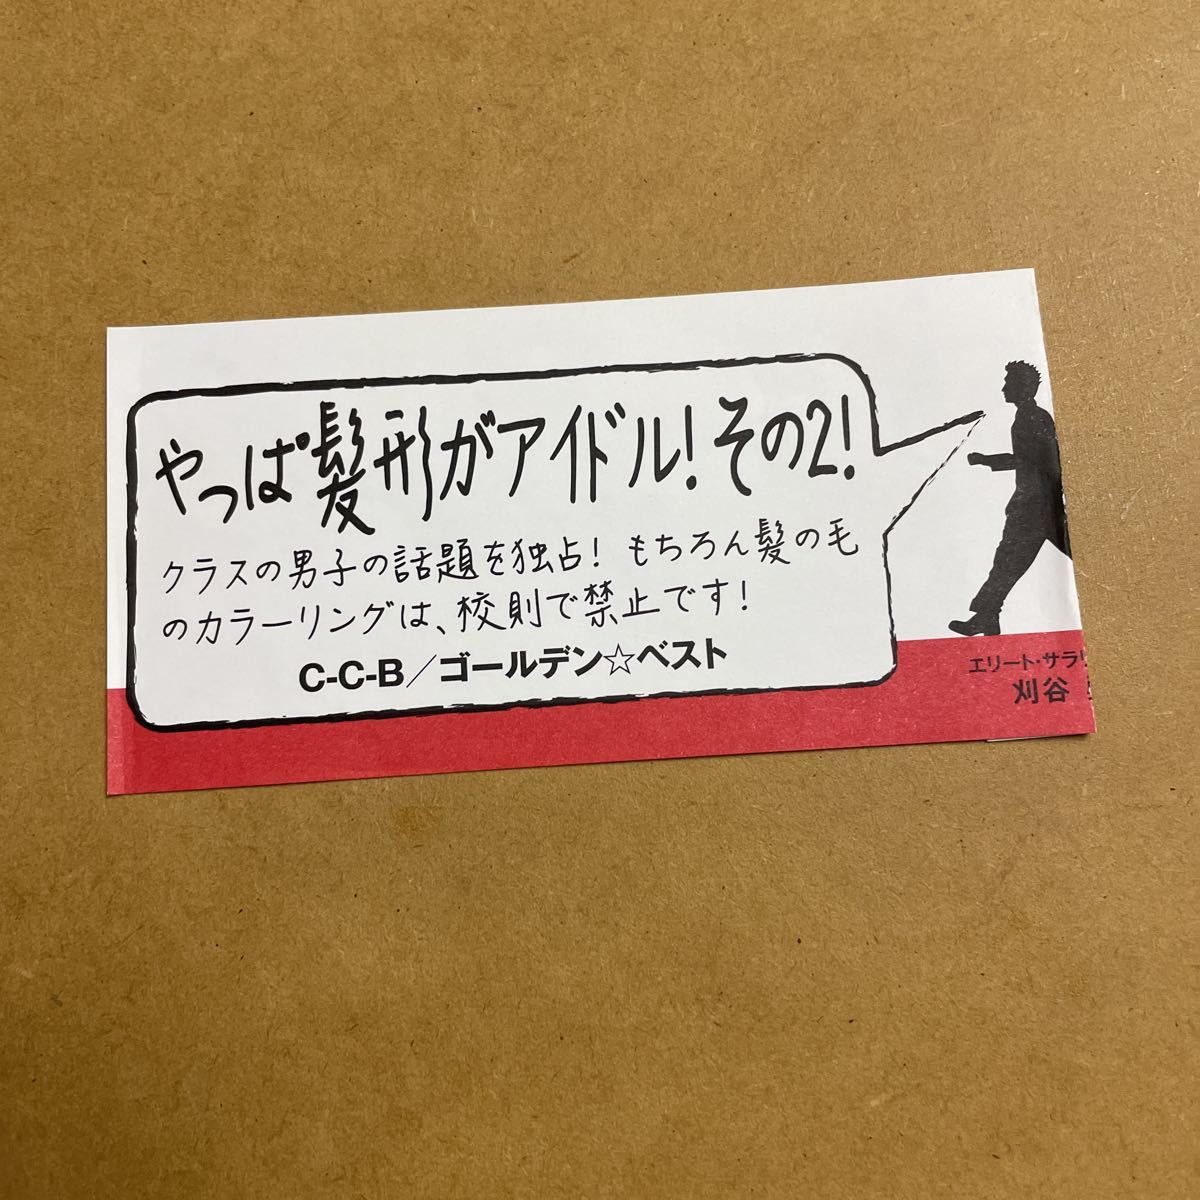 やっぱ髪形がアイドル!その2!
クラスの男子の話題を独占! もちろん髪の毛
のカラーリングは、校則で禁止です!
C-C-B/ゴールデン☆ベスト
エリート・サラリ
刈谷